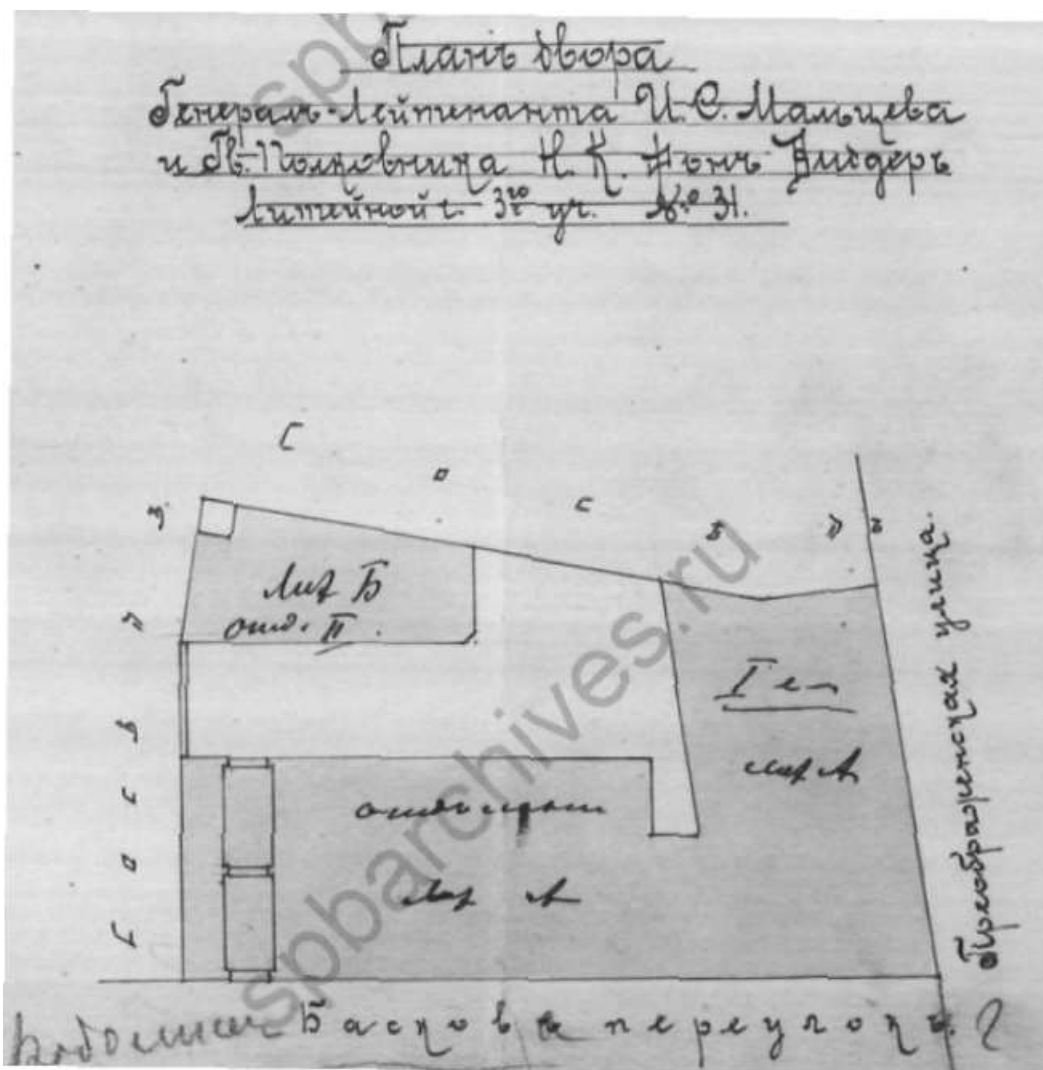 Планъ двора
Генералъ-Лейтенанта И. С. Мальцева
и Гв. Полковника Н. К. Фонъ Видеръ
Литейной ч. 3го уч. № 31.
С о с ѣ д ъ
С о с ѣ д ъ.
Лит Б
отд. II.
I е
лит А
лит А
Преображенская улица.
Басковъ переулокъ.
spbarchives.ru